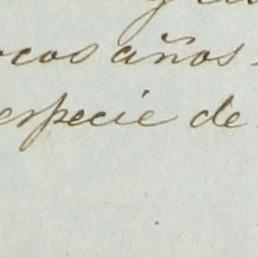 ocos años
especie de